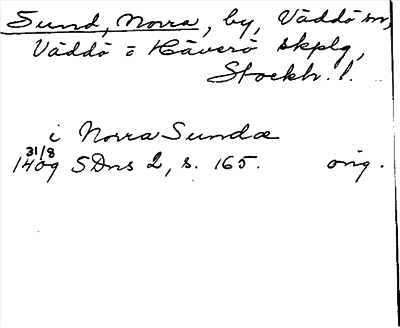 Sund, Norra, by, Väddö sn,
Väddö o Häverö skplg,
Stockh. l.
i Norra Sundæ
31/8
1409 SDns 2, s. 165. orig.